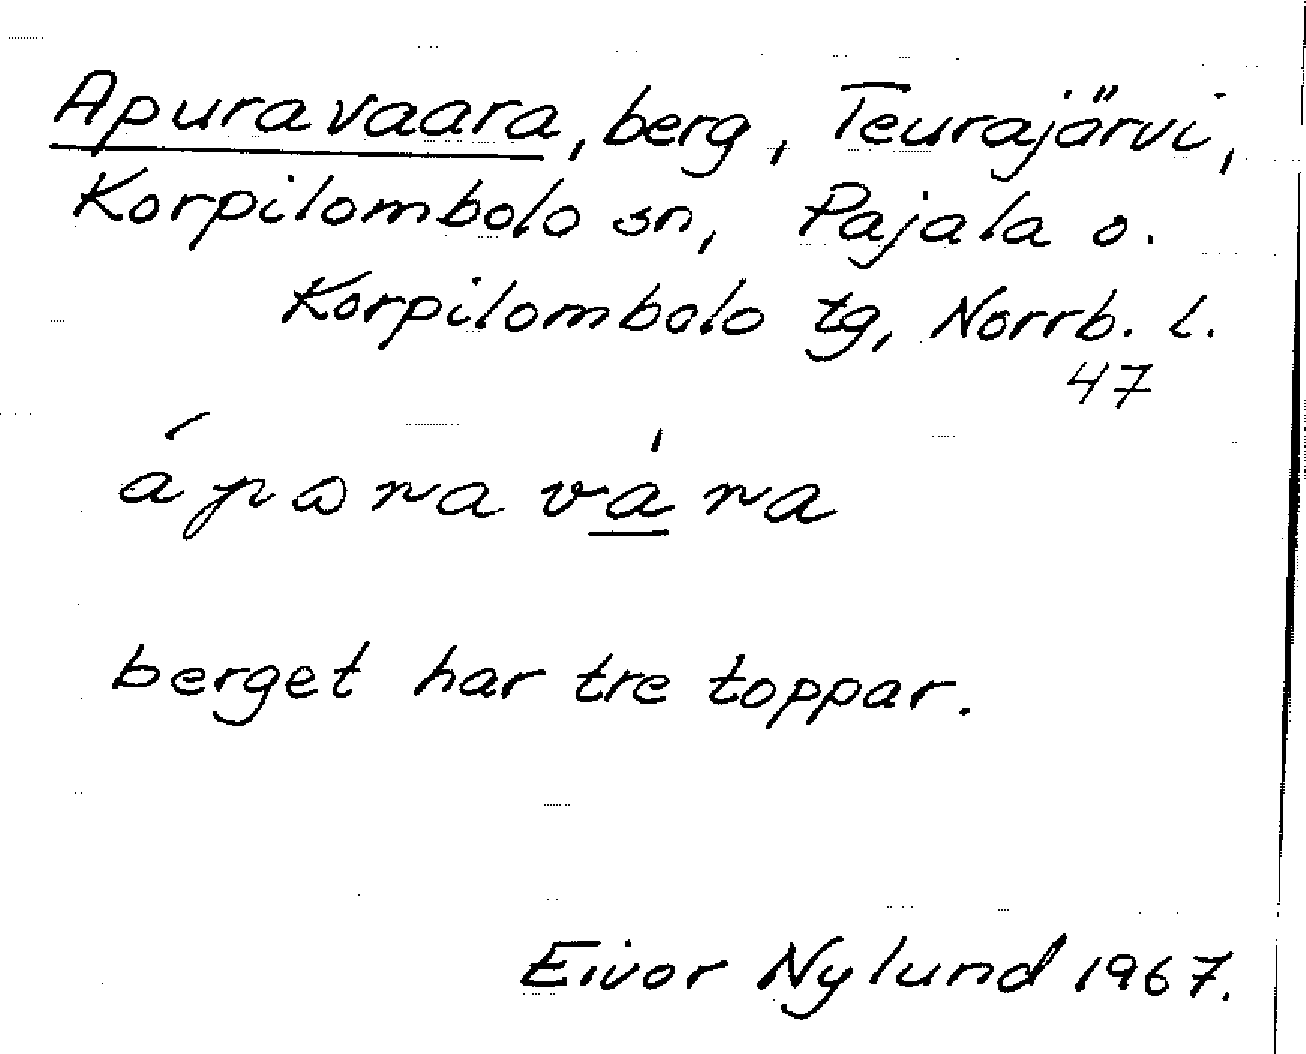 Apuravaara, berg, Teurajärvi,
Korpilombolo sn, Pajala o.
Korpilombolo tg, Norrb. l.
47
áparavára
berget har tre toppar.
Eivor Nylund 1967.